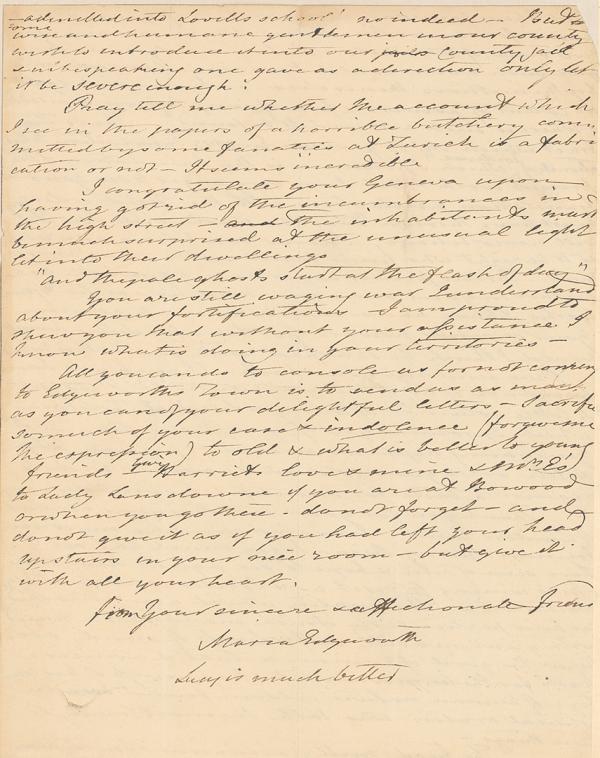 – admitted into Lovells school' no indeed – But so
some
wise and humane gentlemen in our county
wish to introduce it into our jails County jail
& in bespeaking one gave as a direction only let
it be severe enough!
Pray tell me whether the account which
I see in the papers of a horrible butchery com
mitted by some fanatics at Zurich is a fabri
cation or not – It seems incredible
I congratulate your Geneva upon
having got rid of the incumbrances in
the high street – and the inhabitants must
be much surprised at the unusual light
let into their dwellings
"And the pale ghosts start at the flash of day"
You are still waging war I understand
about your fortifications I am proud to
shew you that without your assistance I
know what is doing in your territories –
All you can do to console us for not coming
to Edgeworths Town is to send us as many
as you can of your delightful letters – Sacrifice
so much of your care & indolence (forgive me
the expression) to old & what is better to young
friends – give Harriets love & mine & Mrs E's
to Lady Lansdowne if you are at Bowood
or when you go there – do not forget – and
do not give it as if you had left your head
upstairs in your nice room – but give it
with all your heart.
from Your sincere & affectionate Friend
Maria Edgeworth
Lucy is much better